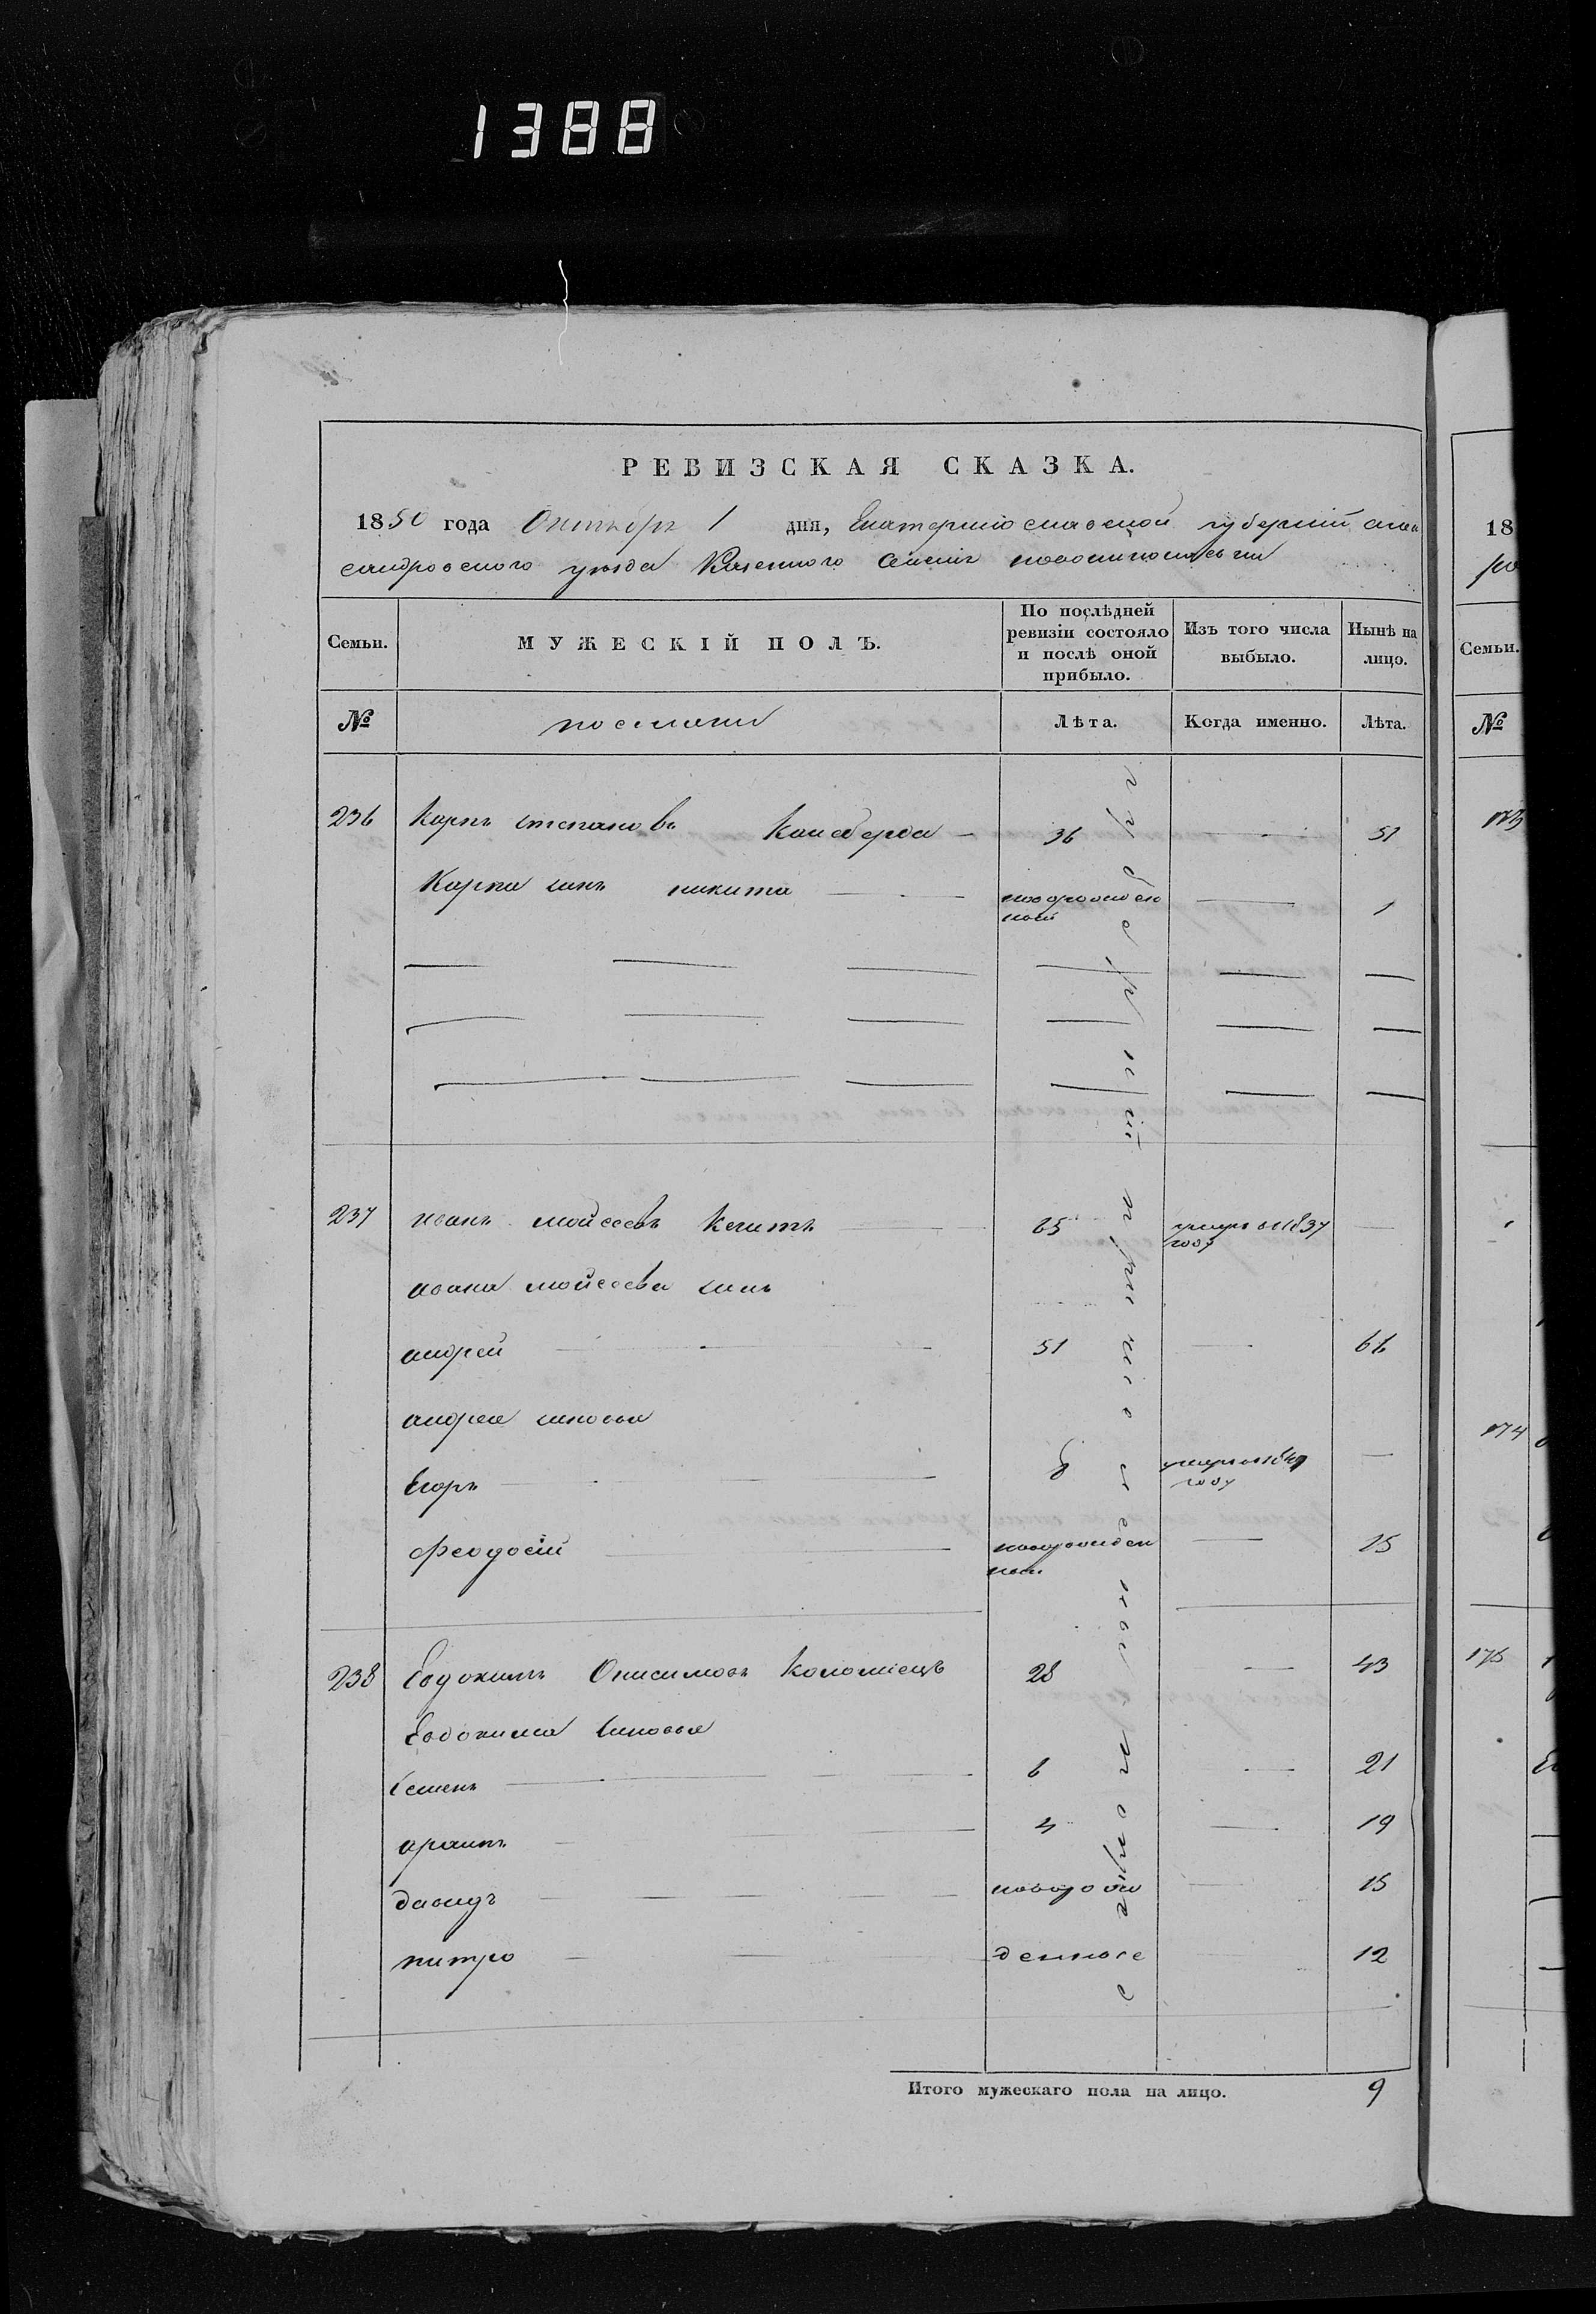 1388
РЕВИЗСКАЯ СКАЗКА.
1850 года Октября 1 дня, Екатеринославской губернии Алек
сандровского уезда Казенного Селения
Семьи.
МУЖЕСКІЙ ПОЛЪ.
По послѣдней ревизіи состояло и послѣ оной прибыло.
Изъ того числа выбыло.
Нынѣ на лицо.
№
Лѣта.
Когда именно.
Лѣта.
236 Карпъ степановъ 36 51
Карпа сынъ никита новорожден 1
ный
237 иванъ мойсеевъ 65 умеръ в 1837
году
ивана мойсеева сынъ
андрей 51 66
андрея сыновья
Егоръ 8 умеръ в
году
Феодосій новорожден 15
ный
238 Евдокимъ Онисимовъ Коломіецъ 28 43
Евдокима сыновья
Семенъ 6 21
4 19
давидъ новорож 15
питро денные 12
Итого мужескаго пола на лицо. 9
18
Семьи.
№
173
174
175